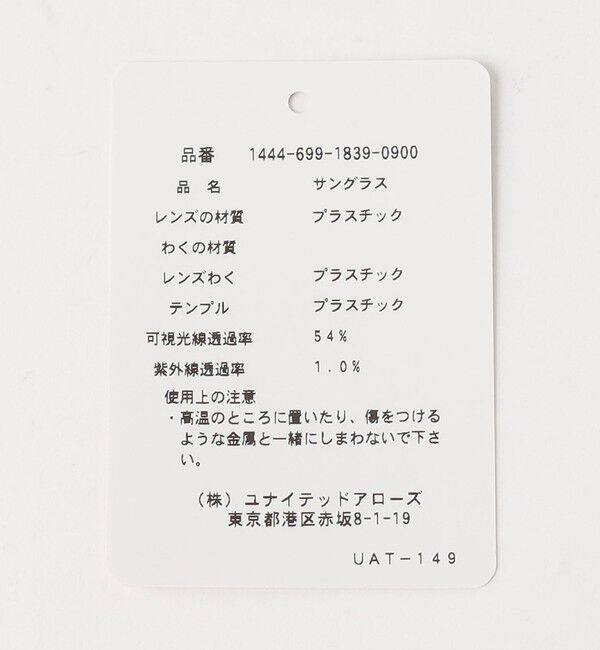 品番 1444-699-1839-0900
品 名 サングラス
レンズの材質 プラスチック
わくの材質
レンズわく プラスチック
テンプル プラスチック
可視光線透過率 54%
紫外線透過率 1.0%
使用上の注意
・高温のところに置いたり、傷をつける
ような金属と一緒にしまわないで下さ
い。
(株) ユナイテッドアローズ
東京都港区赤坂8-1-19
UAT-149